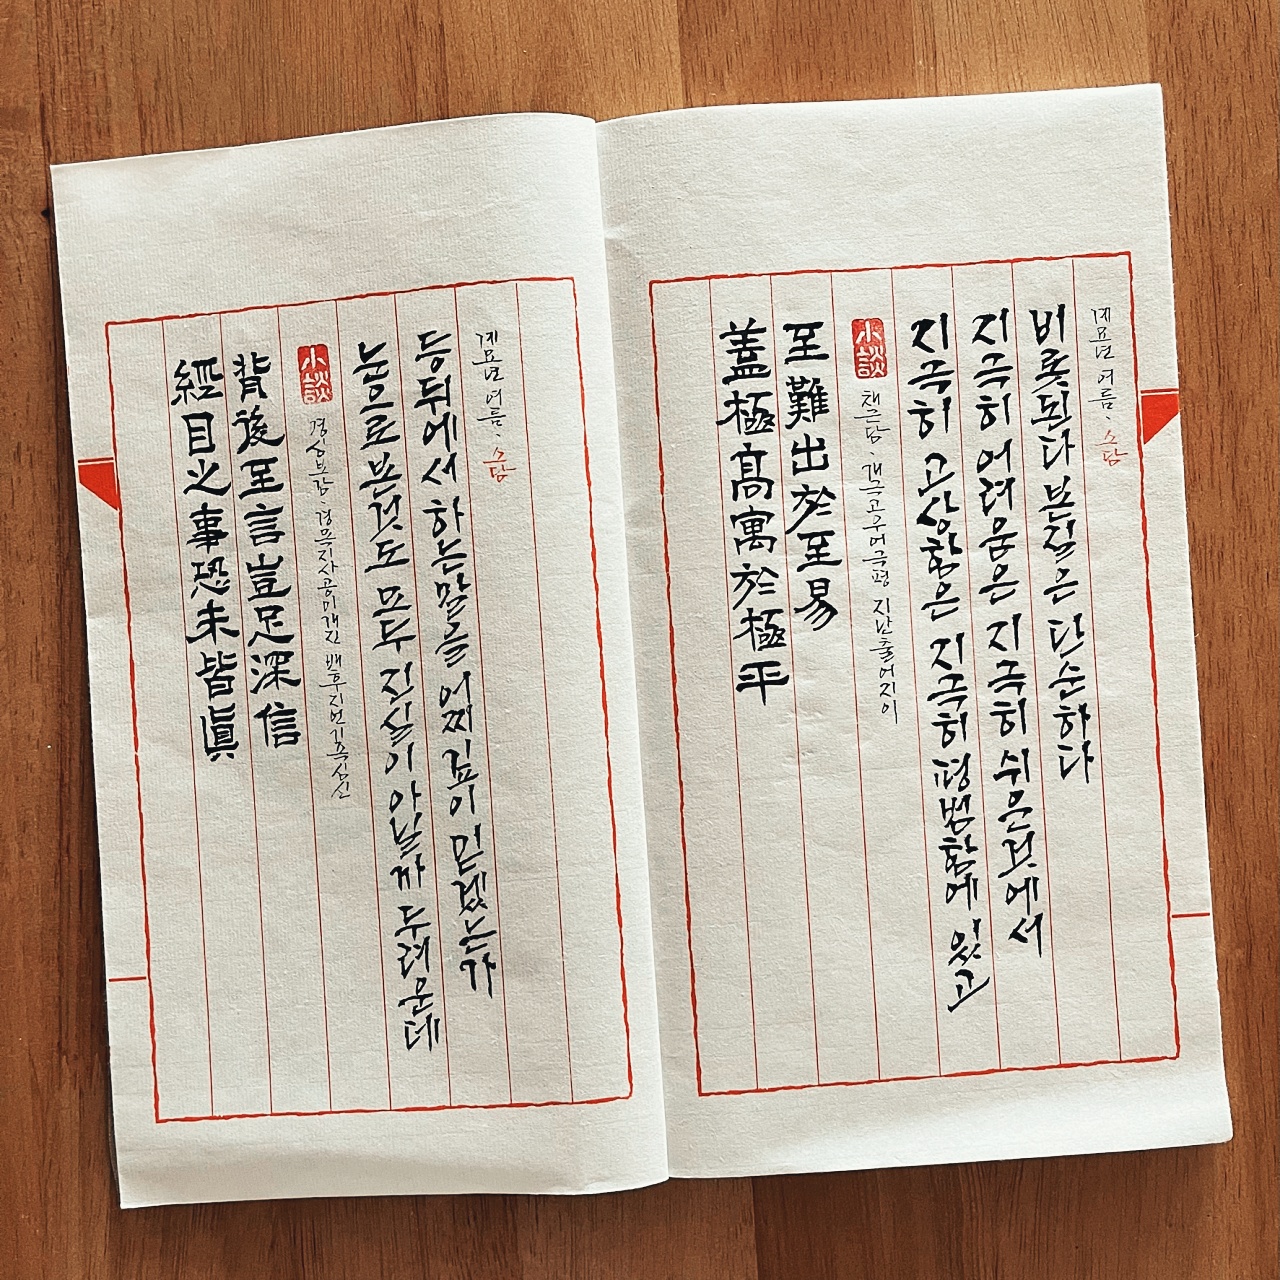 經目之事恐未皆眞
背後至言豈足深信
小談
명심보감. 경목지사공미개진 배후지언기족심신
눈으로 본것도 모두 진실이 아닐까 두려운데
등뒤에서 하는 말을 어찌 깊이 믿겠는가
계묘년 여름. 소담
蓋極高寓於極平
至難出於至易
小談
채근담. 개극고우어극평 지난출어지이
지극히 고상함은 지극히 평범함에 있고
지극히 어려움은 지극히 쉬운것에서
비롯된다 본질은 단순하다
계묘년 여름. 소담